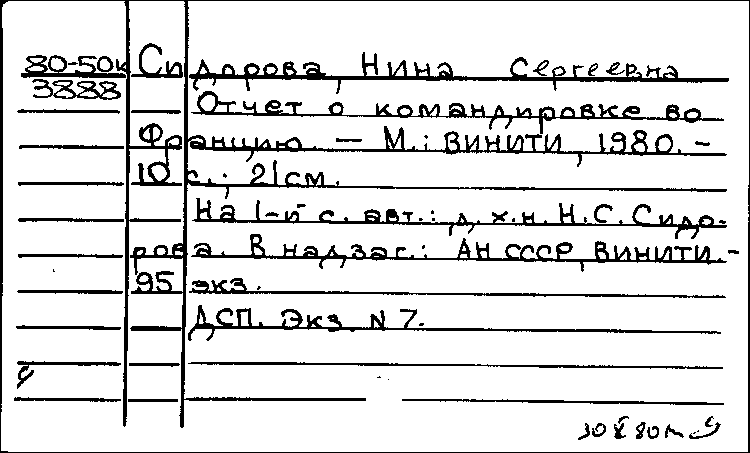 80-50к Сидорова, Нина Сергеевна
3888
Отчет о командировке во
Францию. — М.: ВИНИТИ, 1980. -
10 с.; 21 см.
На 1-й с. авт.: д. х. н. Н. С. Сидо-
рова. В надзаг.: АН СССР, ВИНИТИ. -
95 экз.
ДСП. Экз. N 7.
30 X 80